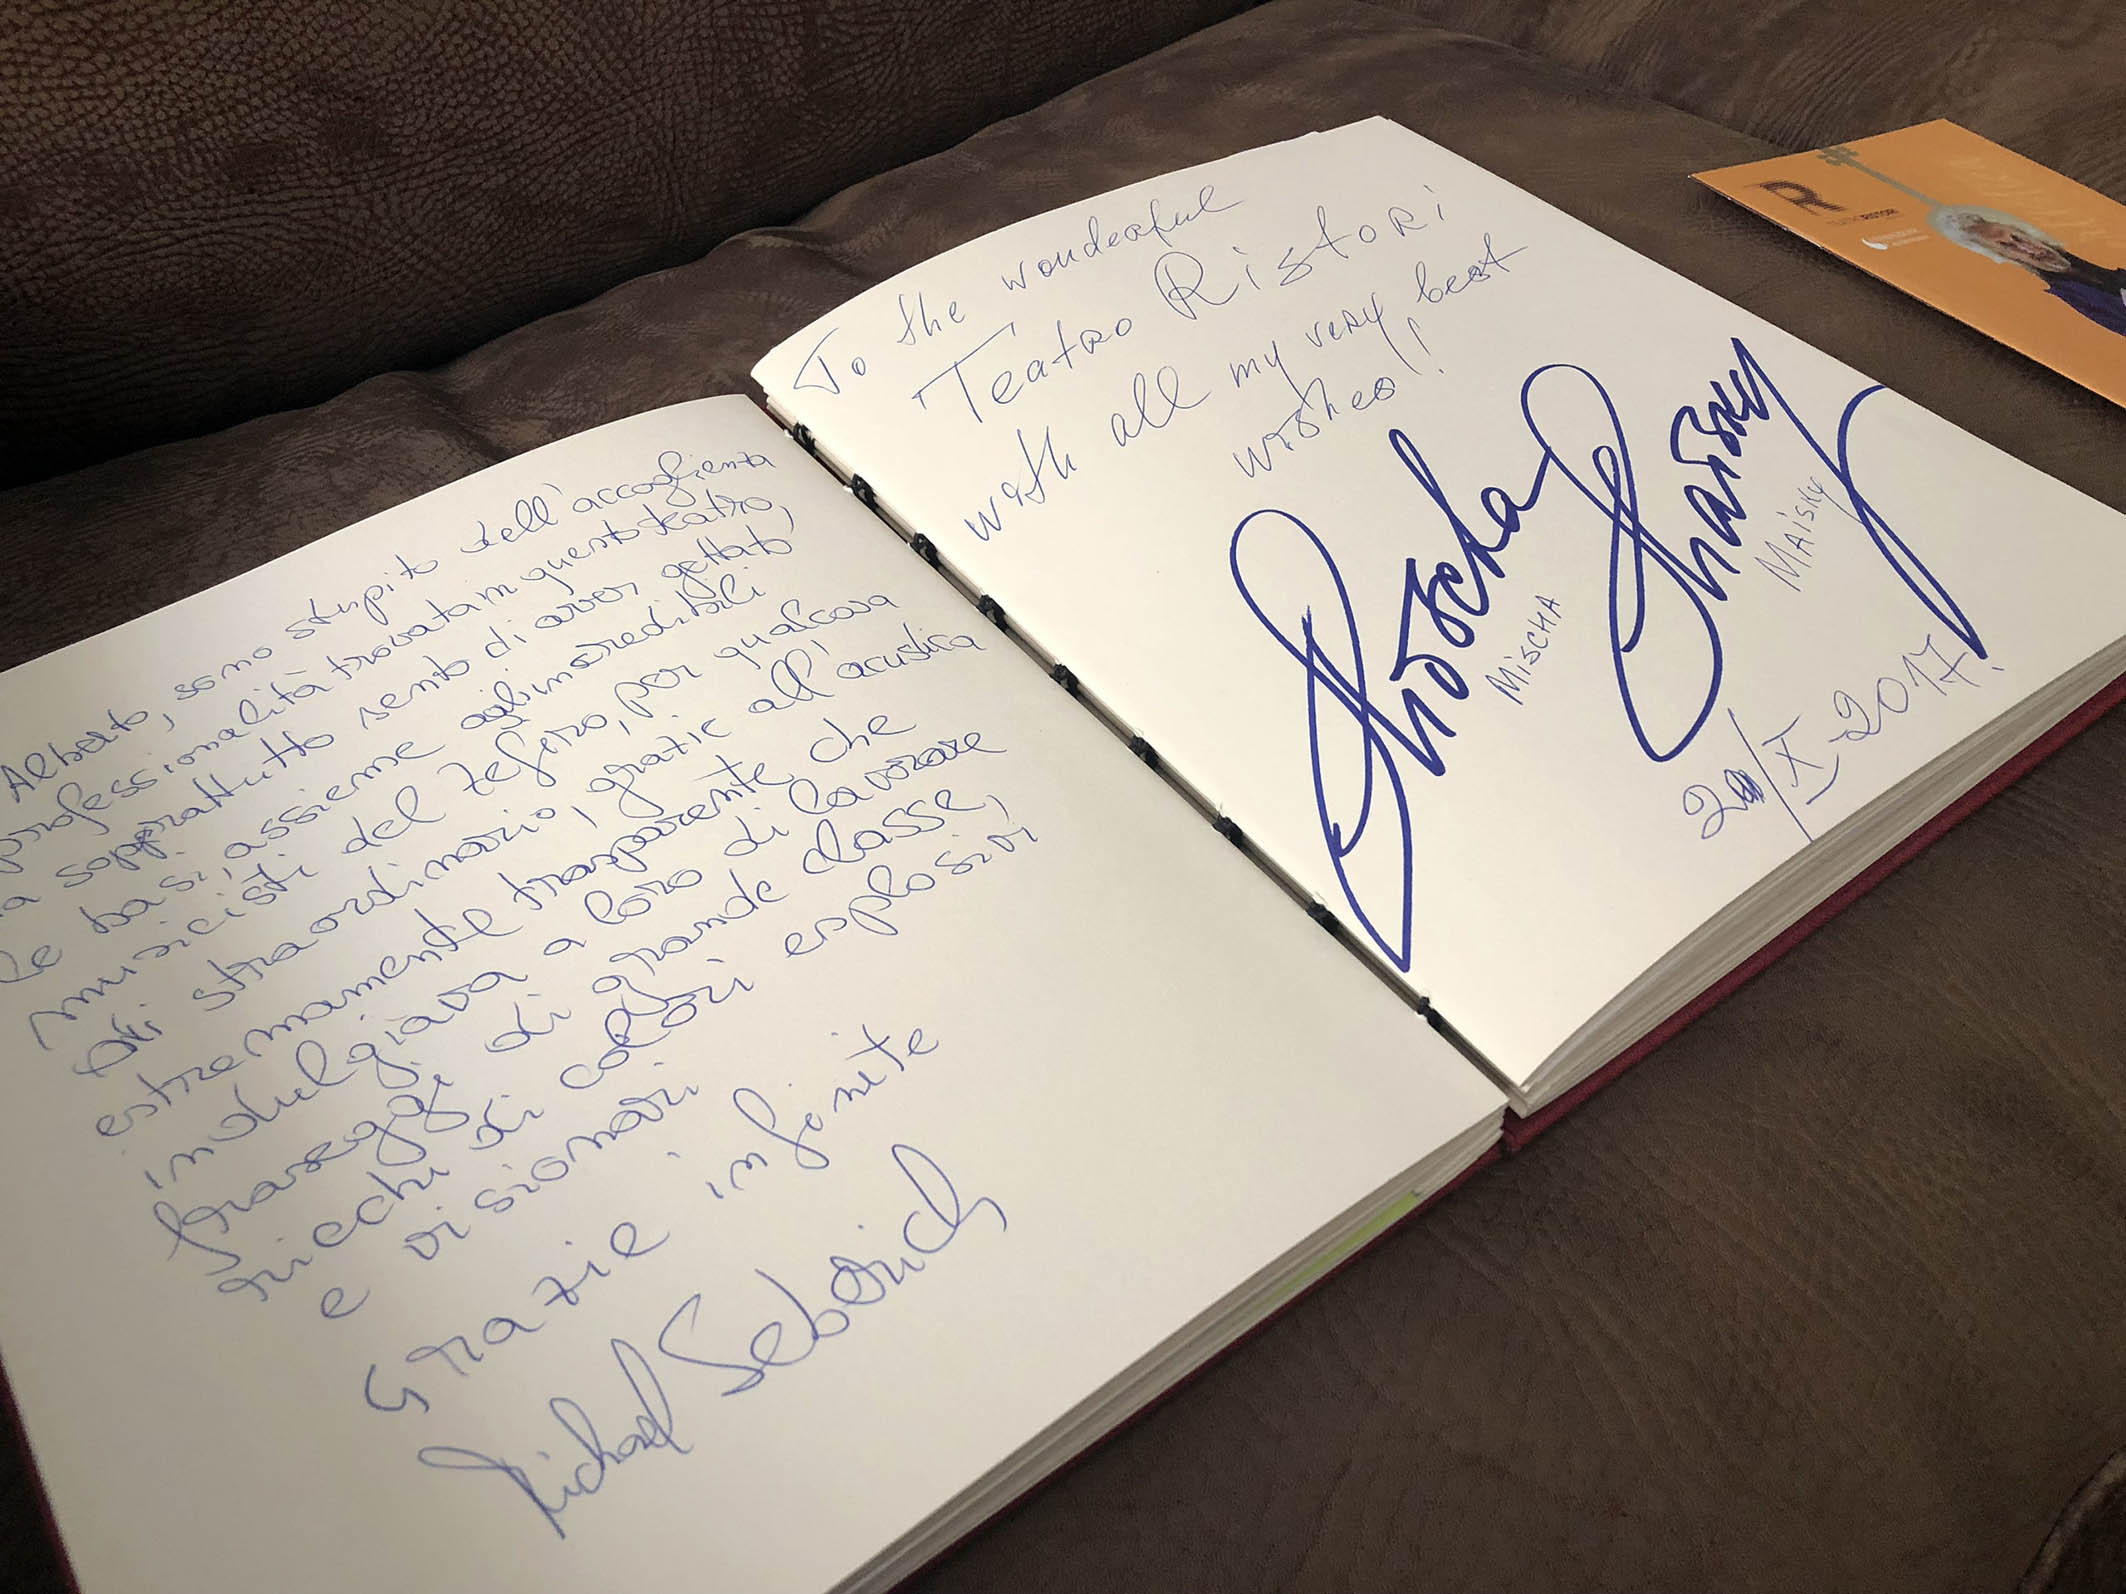 Alberto, sono stupito dell'accoglienza
professionalità trovata in questo teatro,
soprattutto sento di aver gettato
le basi, assieme agli incredibili
musicisti del zefiro, per qualcosa
di straordinario, grazie all'acustica
estremamente trasparente che
indulgiava a loro di lavorare
fraseggi di grande classe,
ricchi di colori esplosivi
e visionari
Grazie infinite
Michael Seberich
To the wonderful
Teatro Ristori
with all my very best
wishes!
Mischa Maisky
MiSCHA MAiSKY
20/X-2017.
R